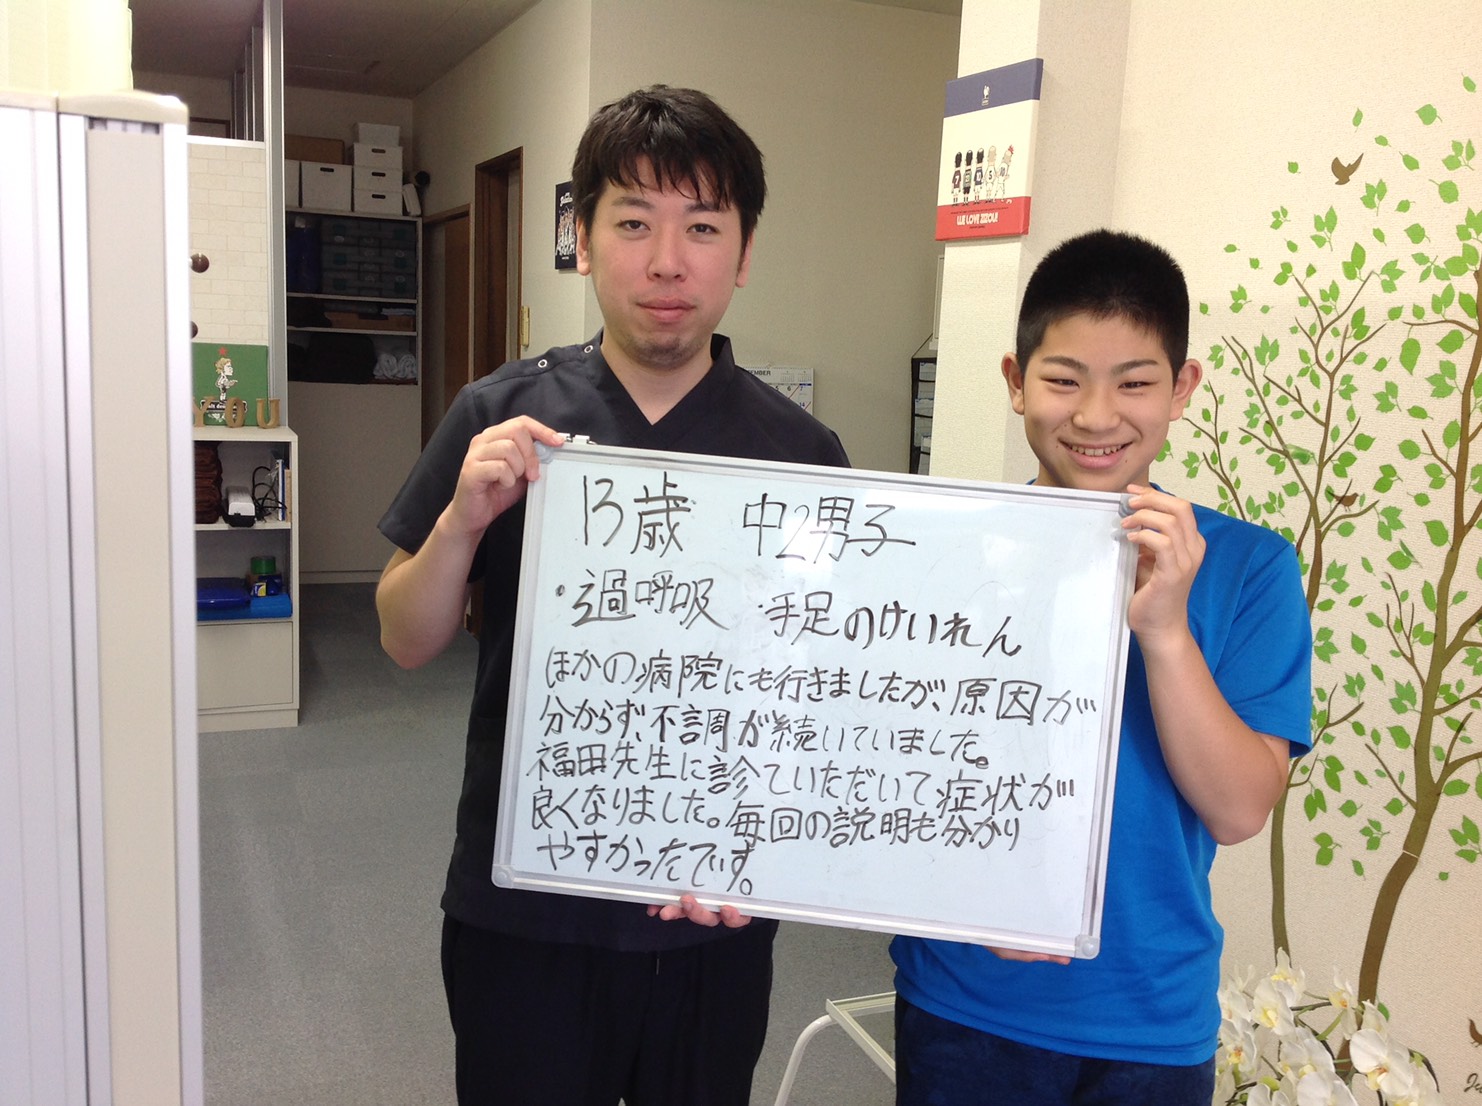 WE LOVE ZIZOU!
YOU
13歳 中2男子
・過呼吸 ・手足のけいれん
ほかの病院にも行きましたが、原因が
分からず、不調が続いていました。
福田先生に診ていただいて症状が
良くなりました。毎回の説明も分かり
やすかったでです。